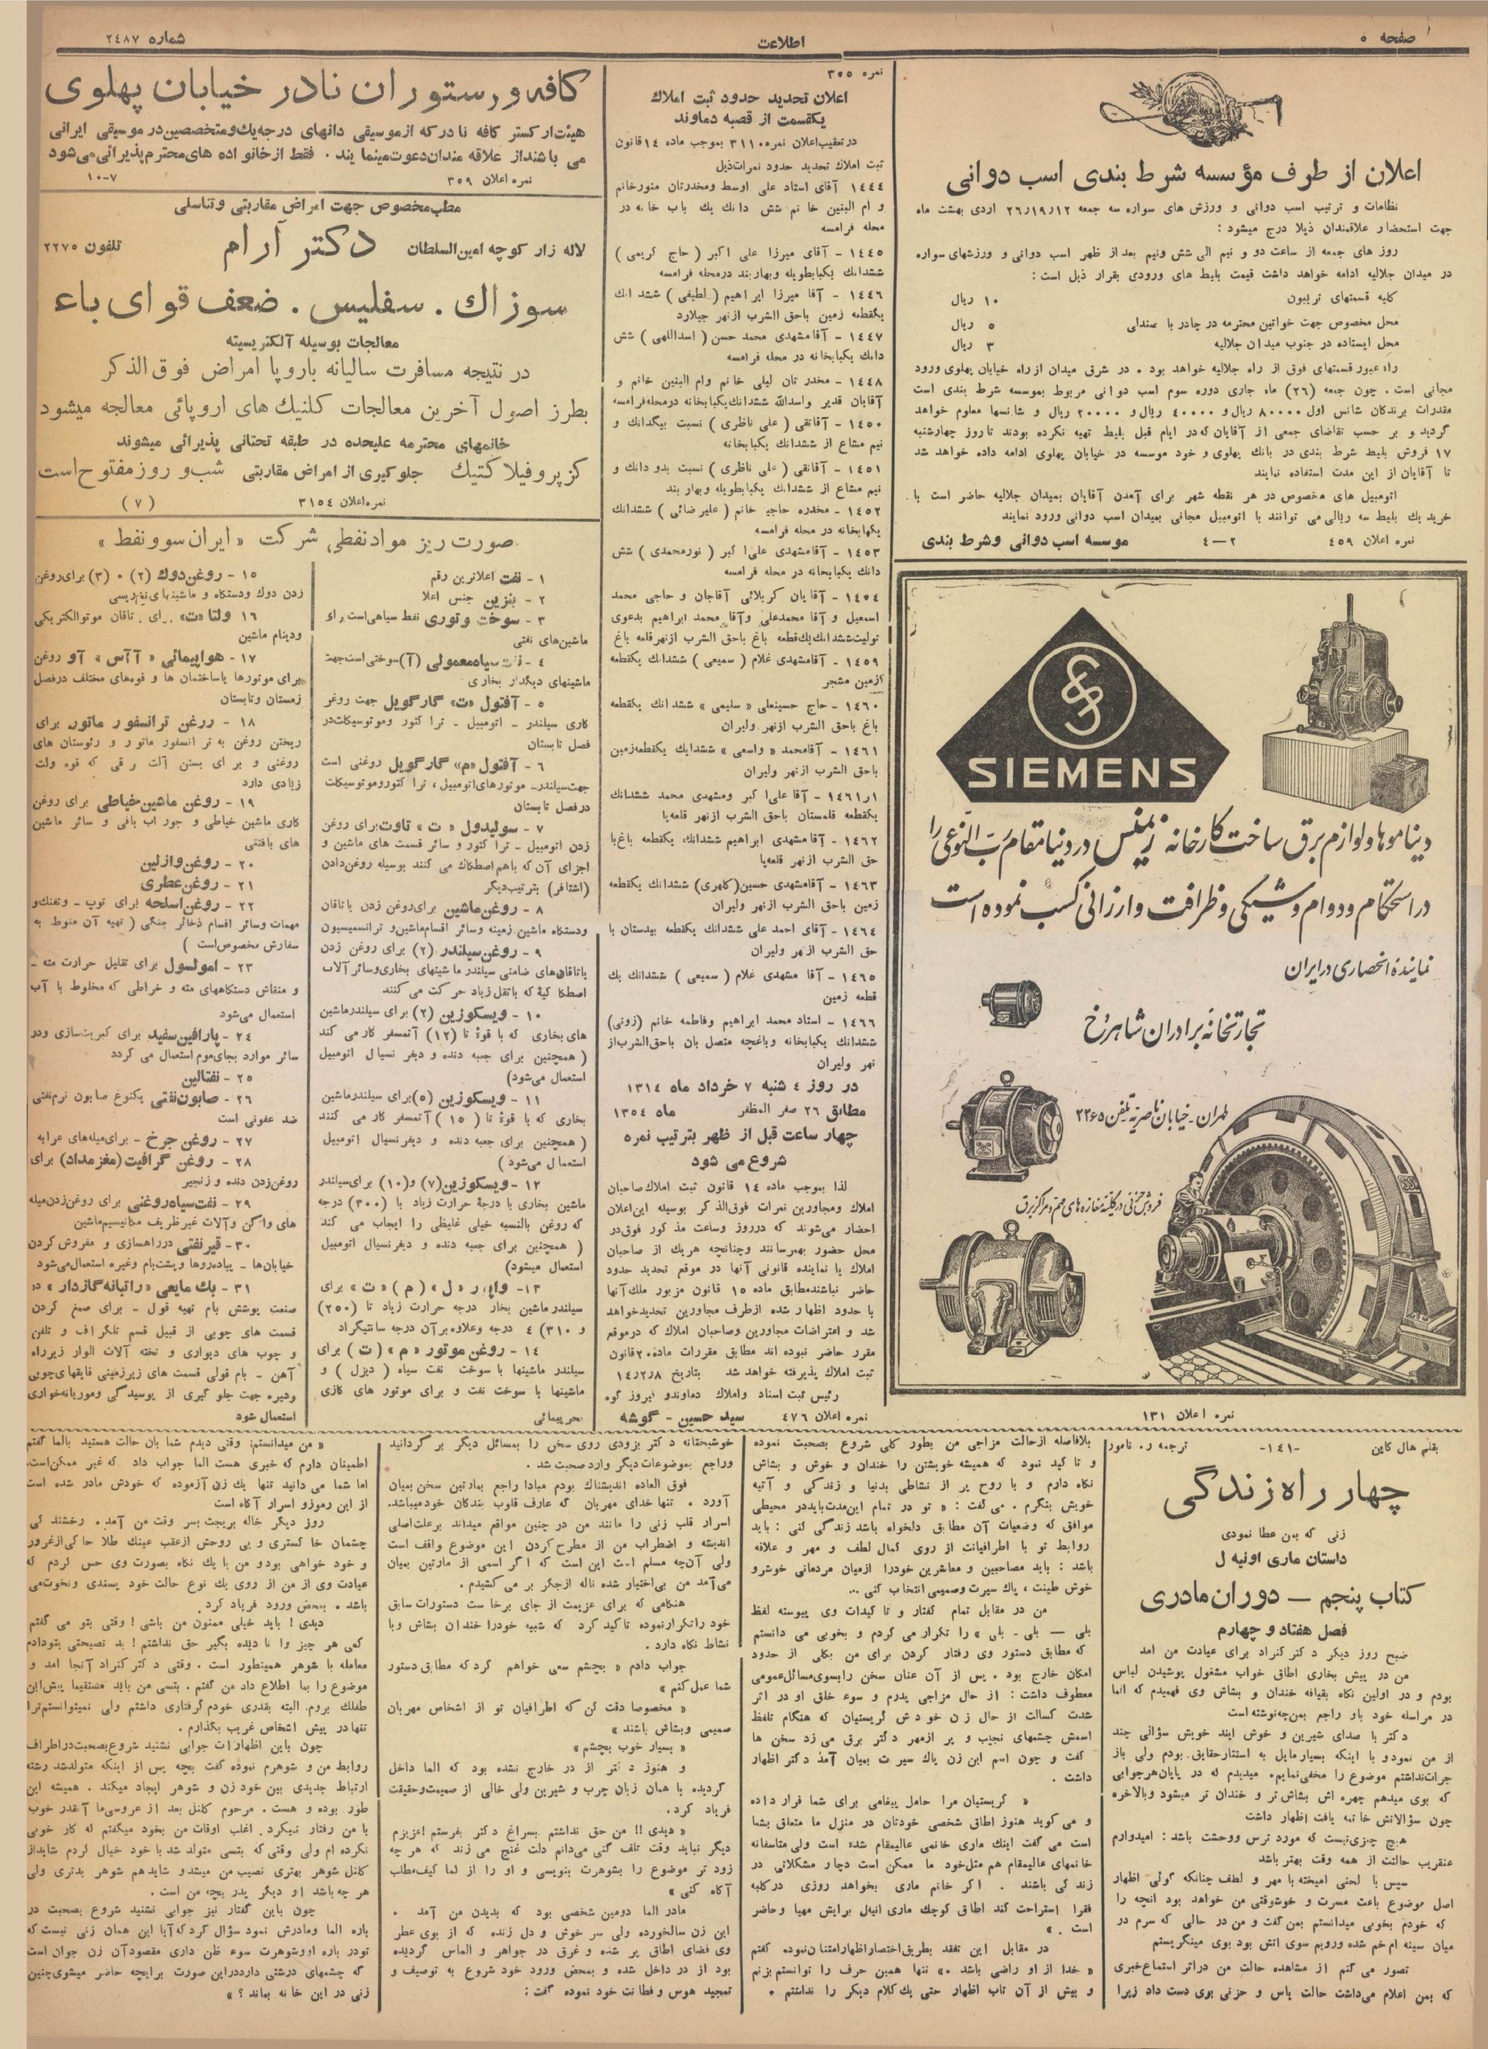 صفحه ٥
اطلاعات
شماره ٢٤٨٧
اعلان از طرف مؤسسه شرط بندی اسب دوانی
نظامات و ترتیب اسب دوانی و ورزش های سواره سه جمعه ٢٦/١٩/١٢ اردی بهشت ماه
جهت استحضار علاقمندان ذیلا درج میشود :
روز های جمعه از ساعت دو و نیم الی شش ونیم بعد از ظهر اسب دوانی و ورزشهای سواره
در میدان جلالیه ادامه خواهد داشت قیمت بلیط های ورودی بقرار ذیل است :
کلیه قسمتهای تریبون ١٠ ریال
محل مخصوص جهت خواتین محترمه در چادر با صندلی ٥ ریال
محل ایستاده در جنوب میدان جلالیه ٣ ریال
راه عبور قسمتهای فوق از راه جلالیه خواهد بود . در شرق میدان از راه خیابان پهلوی ورود
مجانی است . چون جمعه (٢٦) ماه جاری دوره سوم اسب دوانی مربوط بموسسه شرط بندی است
مقدرات برندگان شانس اول ٨٠٠٠٠ ریال و ٤٠٠٠٠ ریال و ٢٠٠٠٠ ریال و شانسها معلوم خواهد
گردید و بر حسب تقاضای جمعی از آقایان که در ایام قبل بلیط تهیه نکرده بودند تا روز چهارشنبه
١٧ فروش بلیط شرط بندی در بانك پهلوی و خود موسسه در خیابان پهلوی ادامه داده خواهد شد
تا آقایان از این مدت استفاده نمایند
اتومبیل های مخصوص در هر نقطه شهر برای آمدن آقایان بمیدان جلالیه حاضر است با
خرید یك بلیط سه ریالی می توانند با اتومبیل مجانی بمیدان اسب دوانی ورود نمایند
نمره اعلان ٤٥٩ ٢—٤ موسسه اسب دوانی وشرط بندی
SIEMENS
دینامو ها و لوازم برق ساخت کارخانه زیمنس در دنیا مقام رب النوعی را
در استحکام و دوام و شیکی و ظرافت و ارزانی کسب نموده است
نماینده انحصاری در ایران
تجارتخانه برادران شاهرخ
طهران ـ خیابان ناصریه تلفن ٢٢٦٥
فروش جزئی در کلیه مغازه های مهم و مراکز برق
نمره اعلان ١٣١
نمره ٣٥٥
اعلان تحدید حدود ثبت املاك
یکقسمت از قصبه دماوند
در تعقیب اعلان نمره ٣١١٠ بموجب ماده ١٤ قانون
ثبت املاك تحدید حدود نمرات ذیل
١٤٤٤ آقای استاد علی اوسط و مخدرتان منور خانم
و ام البنین خانم شش دانك یك باب خانه در
محله فرامسه
١٤٤٥ - آقای میرزا علی اکبر ( حاج کریمی )
ششدانك یکبابطویله وبهاربند درمحله فرامسه
١٤٤٦ - آقا میرزا ابراهیم ( لطیفی ) ششدانك
یکقطعه زمین باحق الشرب ازنهر جیلارد
١٤٤٧ - آقامشهدی محمد حسن ( اسداللهی ) شش
دانك یکبابخانه در محله فرامسه
١٤٤٨ - مخدرتان لیلی خانم وام البنین خانم و
آقایان قدیر واسدالله ششدانك یکبابخانه درمحله فرامسه
١٤٥٠ - آقاتقی ( علی ناظری ) نسبت بیکدانك و
نیم مشاع از ششدانك یکبابخانه
١٤٥١ - آقانقی ( علی ناظری ) نسبت بدو دانك و
نیم مشاع از ششدانك یکبابطویله وبهار بند
١٤٥٢ - مخدره حاجیه خانم ( علیرضائی ) ششدانك
یکبابخانه در محله فرامسه
١٤٥٣ - آقامشهدی علی اکبر ( نورمحمدی ) شش
دانك یکبابخانه در محله فرامسه
١٤٥٤ - آقایان کربلائی آقاجان و حاجی محمد
اسمعیل و آقا محمدعلی وآقا محمد ابراهیم بدعوی
تولیت ششدانك یك قطعه باغ باحق الشرب ازنهر قلعه باغ
١٤٥٩ - آقامشهدی غلام ( سمیعی ) ششدانك یکقطعه
زمین مشجر
١٤٦٠ - حاج حسینعلی « سلیمی » ششدانك یکقطعه
باغ باحق الشرب ازنهر ولیران
١٤٦١ - آقامحمد « واسعی » ششدانك یکقطعه زمین
باحق الشرب ازنهر ولیران
١ر١٤٦١ - آقا علی اکبر ومشهدی محمد ششدانك
یکقطعه قلمستان باحق الشرب ازنهر قلعه یا
١٤٦٢ - آقامشهدی ابراهیم ششدانك یکقطعه باغ با
حق الشرب ازنهر قلعه یا
١٤٦٣ - آقامشهدی حسین (کاهری) ششدانك یکقطعه
زمین باحق الشرب ازنهر ولیران
١٤٦٤ - آقای احمد علی ششدانك یکقطعه بیدستان با
حق الشرب ازنهر ولیران
١٤٦٥ - آقا مشهدی غلام ( سمیعی ) ششدانك یك
قطعه زمین
١٤٦٦ - استاد محمد ابراهیم وفاطمه خانم (زونی)
ششدانك یکبابخانه وباغچه متصل بان باحق الشرب از
نهر ولیران
در روز ٤ شنبه ٧ خرداد ماه ١٣١٤
مطابق ٢٦ صفر المظفر ماه ١٣٥٤
چهار ساعت قبل از ظهر بترتیب نمره
شروع می شود
لذا بموجب ماده ١٤ قانون ثبت املاك صاحبان
املاك ومجاورین نمرات فوق الذکر بوسیله این اعلان
احضار می‌شوند که درروز وساعت مذکور فوق در
محل حضور بهمرسانند وچنانچه هریك از صاحبان
املاك یا نماینده قانونی آنها در موقع تحدید حدود
حاضر نباشند مطابق ماده ١٥ قانون مزبور ملك آنها
با حدود اظهار شده از طرف مجاورین تحدید خواهد
شد و اعتراضات مجاورین وصاحبان املاك که درموقع
مقرر حاضر نبوده اند مطابق مقررات ماده ٢٠ قانون
ثبت املاك پذیرفته خواهد شد بتاریخ ١٤/٢/٨
رئیس ثبت اسناد واملاك دماوند و فیروز کوه
نمره اعلان ٤٧٦ سید حسین - گوشه
کافه و رستوران نادر خیابان پهلوی
هیئت ارکستر کافه نادر که از موسیقی دانهای درجه یك و متخصصین در موسیقی ایرانی
می باشند از علاقه مندان دعوت مینماید . فقط از خانواده های محترم پذیرائی میشود
نمره اعلان ٣٥٩ ٧-١٠
مطب مخصوص جهت امراض مقاربتی وتناسلی
لاله زار کوچه امین السلطان دکتر آرام تلفون ٢٢٧٥
سوزاك . سفلیس . ضعف قوای باء
معالجات بوسیله آلکتریسیته
در نتیجه مسافرت سالیانه باروپا امراض فوق الذکر
بطرز اصول آخرین معالجات کلنیك های اروپائی معالجه میشود
خانمهای محترمه علیحده در طبقه تحتانی پذیرائی میشوند
کز پروفیلاکتیك جلوگیری از امراض مقاربتی شب و روز مفتوح است
نمره اعلان ٣١٥٤ ( ٧ )
صورت ریز مواد نفطی شرکت « ایران سوو نفط »
١ - نفت اعلاترین رقم
٢ - بنزین جنس اعلا
٣ - سوخت وتوری نفط سیاهی است برای
ماشین‌های نفتی
٤ - نفت سیاه معمولی (آ) سوختی است جهت
ماشینهای دیگدار بخاری
٥ - آفتول «ت» گارگویل جهت روغن
کاری سیلندر - اتومبیل - تراکتور وموتوسیکلت در
فصل تابستان
٦ - آفتول «م» گارگویل روغنی است
جهت سیلندر - موتورهای اتومبیل ، تراکتور و موتوسیکلت
درفصل تابستان
٧ - سولیدول « ت » تاوت برای روغن
زدن اتومبیل - تراکتور و سائر قسمت های ماشین و
اجزای آن که باهم اصطکاك می کنند بوسیله روغن دادن
(اشتافر) بترتیب دیگر
٨ - روغن ماشین برای روغن زدن یاتاقان
ودستگاه ماشین زمینه وسائر اقسام ماشین و ترانسمیسیون
٩ - روغن سیلندر (٢) برای روغن زدن
یاتاقان‌های ضامنی سیلندر ماشینهای بخاری وسائر آلات
اصطکاکیه که باثقل زیاد حرکت می کنند
١٠ - ویسکوزین (٢) برای سیلندر ماشین
های بخاری که با قوة تا (١٢) آتمسفر کار می کند
( همچنین برای جعبه دنده و دیفرنسیال اتومبیل
استعمال می‌شود)
١١ - ویسکوزین (٥) برای سیلندر ماشین
بخاری که با قوة تا ( ١٥ ) آتمسفر کار می کنند
( همچنین برای جعبه دنده و دیفرنسیال اتومبیل
استعمال می‌شود )
١٢ - ویسکوزین (٧) و(١٠) برای سیلندر
ماشین بخاری با درجة حرارت زیاد با (٣٠٠) درجه
که روغن بالنسبه خیلی غلیظی را ایجاب می کند
( همچنین برای جعبه دنده و دیفرنسیال اتومبیل
استعمال میشود)
١٣ - واپر « ل » ( م ) « ت » برای
سیلندر ماشین بخار درجه حرارت زیاد تا (٢٥٠)
و ٣١٠) ٤ درجه وعلاوه بر آن درجه سانتیگراد
١٤ - روغن موتور « م » ( ت ) برای
سیلندر ماشینها با سوخت نفت سیاه ( دیزل ) و
ماشینها با سوخت نفت و برای موتور های گازی
بحرپیمائی
١٥ - روغن دوك (٢) ٠ (٣) برای روغن
زدن دوك ودستگاه و ماشینهای نخ ریسی
١٦ ولتا «ت» برای یاتاقان موتوالکتریکی
ودینام ماشین
١٧ - هواپیمائی « آآس » آو روغن
برای موتورها باساختمان ها و قوه‌های مختلف درفصل
زمستان وتابستان
١٨ - روغن ترانسفورماتور برای
ریختن روغن به ترانسفورماتور و رئوستان های
روغنی و برای بستن آلت برقی که قوه ولت
زیادی دارد
١٩ - روغن ماشین خیاطی برای روغن
کاری ماشین خیاطی و جوراب بافی و سائر ماشین
های بافتنی
٢٠ - روغن وازلین
٢١ - روغن عطری
٢٢ - روغن اسلحه برای توپ - وتفنك و
مهمات وسائر اقسام ذخائر جنگی ( تهیه آن منوط به
سفارش مخصوص است )
٢٣ - امولسول برای تقلیل حرارت مته -
و منقاش دستگاههای مته و خراطی که مخلوط با آب
استعمال می‌شود
٢٤ - پارافین سفید برای کبریت سازی ودر
سائر موارد بجای موم استعمال می گردد
٢٥ - نفتالین
٢٦ - صابون نفتی یکنوع صابون نرم نفتی
ضد عفونی است
٢٧ - روغن چرخ - برای میله‌های عرابه
٢٨ - روغن گرافیت (مغز مداد) برای
روغن زدن دنده و زنجیر
٢٩ - نفت سیاه روغنی برای روغن زدن میله
های واگن وآلات غیرظریف مکانیسم ماشین
٣٠ - قیر نفتی درراهسازی و مفروش کردن
خیابان‌ها - پیاده‌روها وپشت بام وغیره استعمال می‌شود
٣١ - پك مایعی « راتیانه گازدار » در
صنعت پوشش بام تهیه قول - برای صمغ کردن
قسمت های چوبی از قبیل قسم تلگراف و تلفن
و چوب های دیواری و تخته آلات الوار زیر راه
آهن - بام قولی قسمت های زیر زمینی قایقهای چوبی
وغیره جهت جلوگیری از پوسیدگی وموریانه خواری
استعمال شود
بقلم هال کاین -١٤١- ترجمه ر. نامور
چهار راه زندگی
زنی که بمن عطا نمودی
داستان ماری اونیه ل
کتاب پنجم — دوران مادری
فصل هفتاد و چهارم
صبح روز دیگر دکتر کنراد برای عیادت من امد
من در پیش بخاری اطاق خواب مشغول پوشیدن لباس
بودم و در اولین نگاه بقیافه خندان و بشاش وی فهمیدم که الما
در مراسله خود باو راجع بمن چه نوشته است
دکتر با صدای شیرین و خوش ایند خویش سؤالی چند
از من نمود و با اینکه بسیار مایل به استتار حقایق بودم ولی باز
جرات نداشتم موضوع را مخفی نمایم. میدیدم که در پایان هرجوابی
که بوی میدهم چهره اش بشاش تر و خندان تر میشود وبالاخره
چون سؤالاتش خاتمه یافت اظهار داشت
هیچ چیزی نیست که مورد ترس ووحشت باشد : امیدوارم
عنقریب حالتت از همه وقت بهتر باشد
سپس با لحنی امیخته با مهر و لطف چنانکه گوئی اظهار
اصل موضوع باعث مسرت و خوشوقتی من خواهد بود انچه را
که خودم بخوبی میدانستم بمن گفت و من در حالی که سرم در
میان سینه ام خم شده ورویم سوی اتش بود بوی مینگریستم
تصور می کنم از مشاهده حالت من دراثر استماع خبری
که بمن اعلام می‌داشت حالت یاس و حزنی بوی دست داد زیرا
بلافاصله ازحالت مزاجی من بطور کلی شروع بصحبت نموده
و تاکید نمود که همیشه خویشتن را خندان و خوش و بشاش
نگاه دارم و با روح پر از نشاطی بدنیا و زندگی و آتیه
خویش بنگرم . می گفت : « تو در تمام این مدت باید در محیطی
موافق که وضعیات آن مطابق دلخواه باشد زندگی کنی : باید
روابط تو با اطرافیانت از روی کمال لطف و مهر و علاقه
باشد : باید مصاحبین و معاشرین خودرا ازمیان مردمانی خوشرو
خوش طینت ، پاك سیرت وصمیمی انتخاب کنی ...
من در مقابل تمام گفتار و تاکیدات وی پیوسته لفظ
بلی — بلی - بلی » را تکرار می کردم و بخوبی می دانستم
که مطابق دستور وی رفتار کردن برای من بکلی از حدود
امکان خارج بود . پس از آن عنان سخن رابسوی مسائل عمومی
معطوف داشت : از حال مزاجی پدرم و سوء خلق او در اثر
شدت کسالت از حال زن خودش کریستیان که هنگام تلفظ
اسمش چشمهای نجیب و پر ازمهر دکتر برق می زد سخن ها
گفت و چون اسم این زن پاك سیرت بمیان آمد دکتر اظهار
داشت .
« کریستیان مرا حامل پیغامی برای شما قرار داده
و می گوید هنوز اطاق شخصی خودتان در منزل ما متعلق بشما
است می گفت اینك ماری خانمی عالیمقام شده است ولی متاسفانه
خانمهای عالیمقام هم مثل خود ما ممکن است دچار مشکلاتی در
زندگی باشند . اگر خانم ماری بخواهد روزی در کلبه
فقرا استراحت کند اطاق کوچك ماری اتیال برایش مهیا وحاضر
است . »
در مقابل این تفقد بطریق اختصار اظهار امتنان نموده گفتم
« خدا از او راضی باشد .» تنها همین حرف را توانستم بزنم
و بیش از آن تاب اظهار حتی یك کلام دیگر را نداشتم .
خوشبختانه دکتر بزودی روی سخن را بمسائل دیگر بر گردانید
وراجع بموضوعات دیگر وارد صحبت شد .
فوق العاده اندیشناك بودم مبادا راجع بمارتین سخن بمیان
آورد . تنها خدای مهربان که عارف قلوب بندگان خود میباشد.
اسرار قلب زنی را مانند من در چنین مواقع میداند برعلت اصلی
اندیشه و اضطراب من از مطرح کردن این موضوع واقف است
ولی آن‌چه مسلم است این است که اگر اسمی از مارتین بمیان
می‌آمد من بی‌اختیار شده ناله ازجگر بر می کشیدم .
هنکامی که برای عزیمت از جای برخاست دستورات سابق
خود راتکرار نموده تاکید کرد که شبیه خودرا خندان بشاش وبا
نشاط نگاه دارد .
جواب دادم « بچشم سعی خواهم کرد که مطابق دستور
شما عمل کنم »
« مخصوصا دقت کن که اطرافیان تو از اشخاص مهربان
صمیمی وبشاش باشند »
« بسیار خوب بچشم »
و هنوز دکتر از در خارج نشده بود که الما داخل
گردیده با همان زبان چرب و شیرین ولی خالی از صمیمیت وحقیقت
فریاد کرد .
« دیدی !! من حق نداشتم بسراغ دکتر بفرستم اعزیزم
دیگر نباید وقت تلف کنی می‌دانم دلت غنج می زند که هر چه
زود تر موضوع را بشوهرت بنویسی و او را از لما کیف مطلب
آگاه کنی »
مادر الما دومین شخصی بود که بدیدن من آمد .
این زن سالخورده ولی سر خوش و دل زنده که از بوی عطر
وی فضای اطاق پر شده و غرق در جواهر و الماس گردیده
بود از در داخل شده و بمحض ورود خود شروع به توصیف و
تمجید هوس و فطانت خود نموده گفت :
« من میدانستم، وقتی دیدم شما بان حالت هستید بالما گفتم
اطمینان دارم که خبری هست الما جواب داد که غیر ممکن است.
اما شما می دانید تنها یك زن آزموده که خودش مادر شده است
از این رموزو اسرار آگاه است
روز دیگر خاله بریجت بسر وقت من آمد . رخشندگی
چشمان خاکستری و بی روحش ازعقب عینك طلا حاکی ازغرور
و خود خواهی بود و من با یك نگاه بصورت وی حس کردم که
عیادت وی از من از روی یك نوع حالت خود پسندی ونخوت می
باشد . بمحض ورود فریاد کرد.
دیدی ! باید خیلی ممنون من باشی ! وقتی بتو می گفتم
کمی هر چیز را نا دیده بگیر حق نداشتم ! بد نصیحتی بتو دادم
معامله با شوهر همینطور است . وقتی دکتر کنراد آنجا امد و
موضوع را بما اطلاع داد من گفتم . بتسی من باید مستقیما پیش این
طفلك بروم. البته بقدری خودم گرفتاری داشتم ولی نمیتوانستم ترا
تنها در پیش اشخاص غریب بگذارم .
چون باین اظهارات جوابی نشنید شروع بصحبت در اطراف
روابط من و شوهرم نموده گفت بچه پس از اینکه متولد شد رشته
ارتباط جدیدی بین خود زن و شوهر ایجاد میکند . همیشه این
طور بوده و هست . مرحوم کانل بعد از عروسی ما آنقدر خوب
با من رفتار نمیکرد. اغلب اوقات من بخود میگفتم که کار خوبی
نکرده ام ولی وقتی که بتسی متولد شد با خود خیال کردم شاید از
کانل شوهر بهتری نصیب من میشد و شاید هم شوهر بدتری ولی
هر چه باشد او دیگر پدر بچه من است .
چون باین گفتار نیز جوابی نشنید شروع بصحبت در
باره الما ومادرش نمود سؤال کرد که آیا این همان زنی نیست که
تو در باره او وشوهرت سوء ظن داری مقصود آن زن جوان است
که چشمهای درشتی دارد در این صورت برایچه حاضر میشوی چنین
زنی در این خانه بماند ؟ »